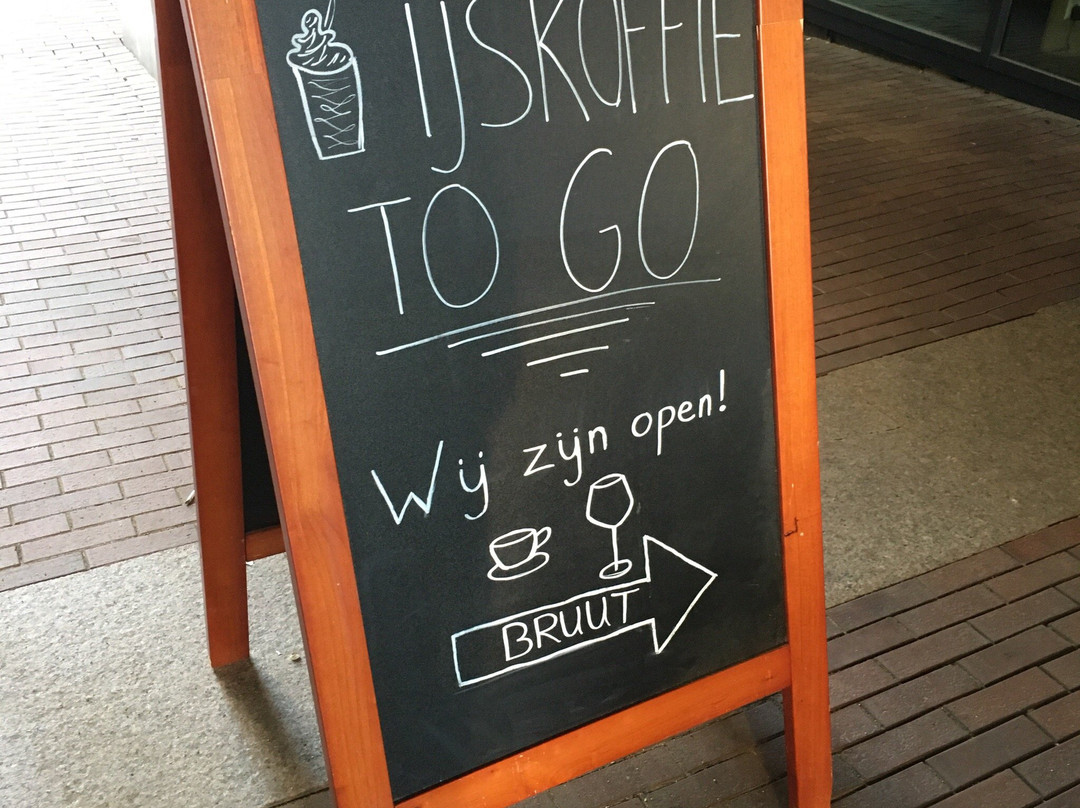 IJSKOFFIE
TO GO
Wij zijn open!
BRUUT